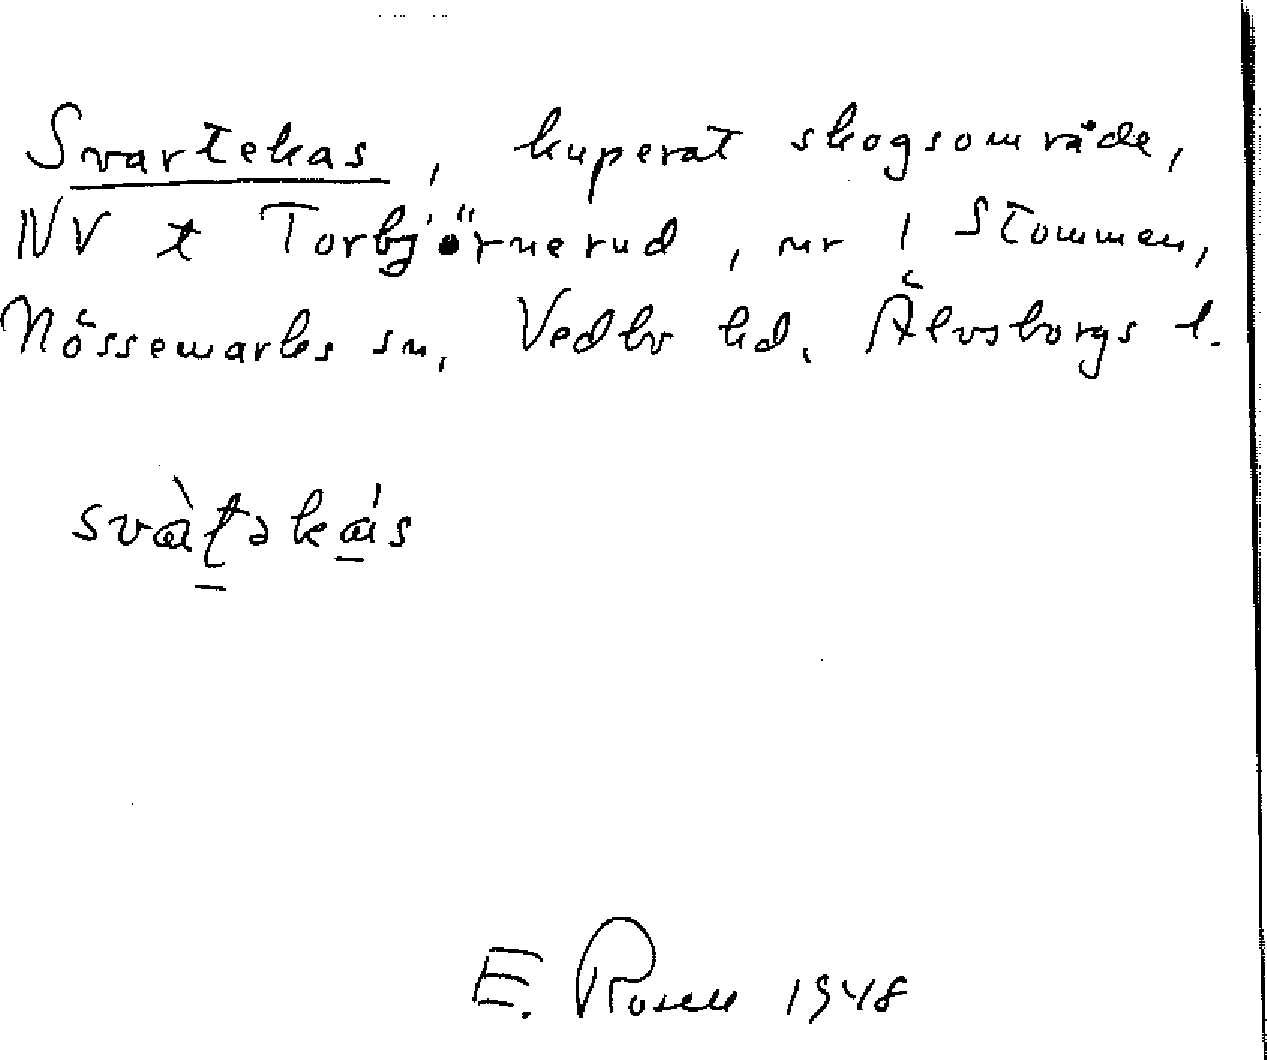 Svartekas, kuperat skogsområde,
NV t Torbjörnerud, nr 1 Stommen,
Nössemarks sn, Vedbo hd, Älvsborgs l.
svàʈəkás
E. Rosell 1948